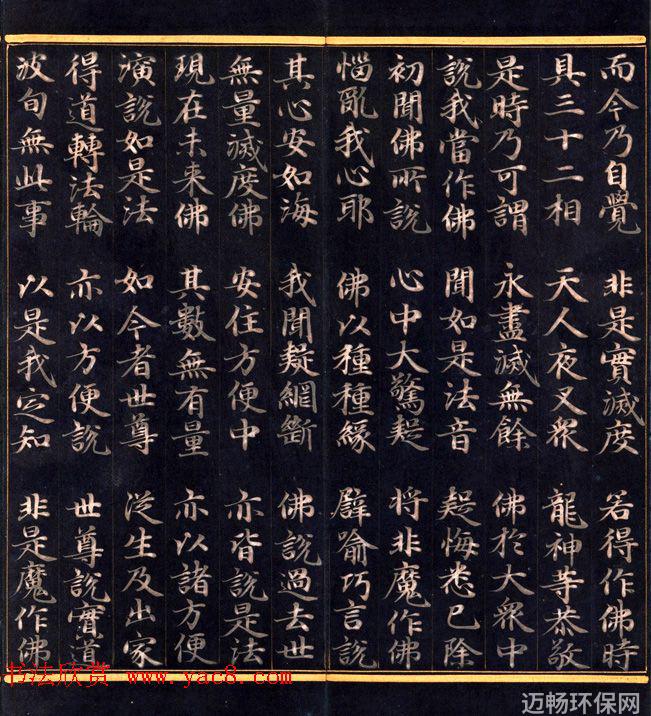 而今乃自覺 非是實滅度 若得作佛時
具三十二相 天人夜叉眾 龍神等恭敬
是時乃可謂 永盡滅無餘 佛於大眾中
說我當作佛 聞如是法音 疑悔悉已除
初聞佛所說 心中大驚疑 將非魔作佛
惱亂我心耶 佛以種種緣 譬喻巧言說
其心安如海 我聞疑網斷 佛說過去世
無量滅度佛 安住方便中 亦皆說是法
現在未來佛 其數無有量 亦以諸方便
演說如是法 如今者世尊 從生及出家
得道轉法輪 亦以方便說 世尊說實道
波旬無此事 以是我定知 非是魔作佛
书法欣赏 www.yac8.com
迈畅环保网